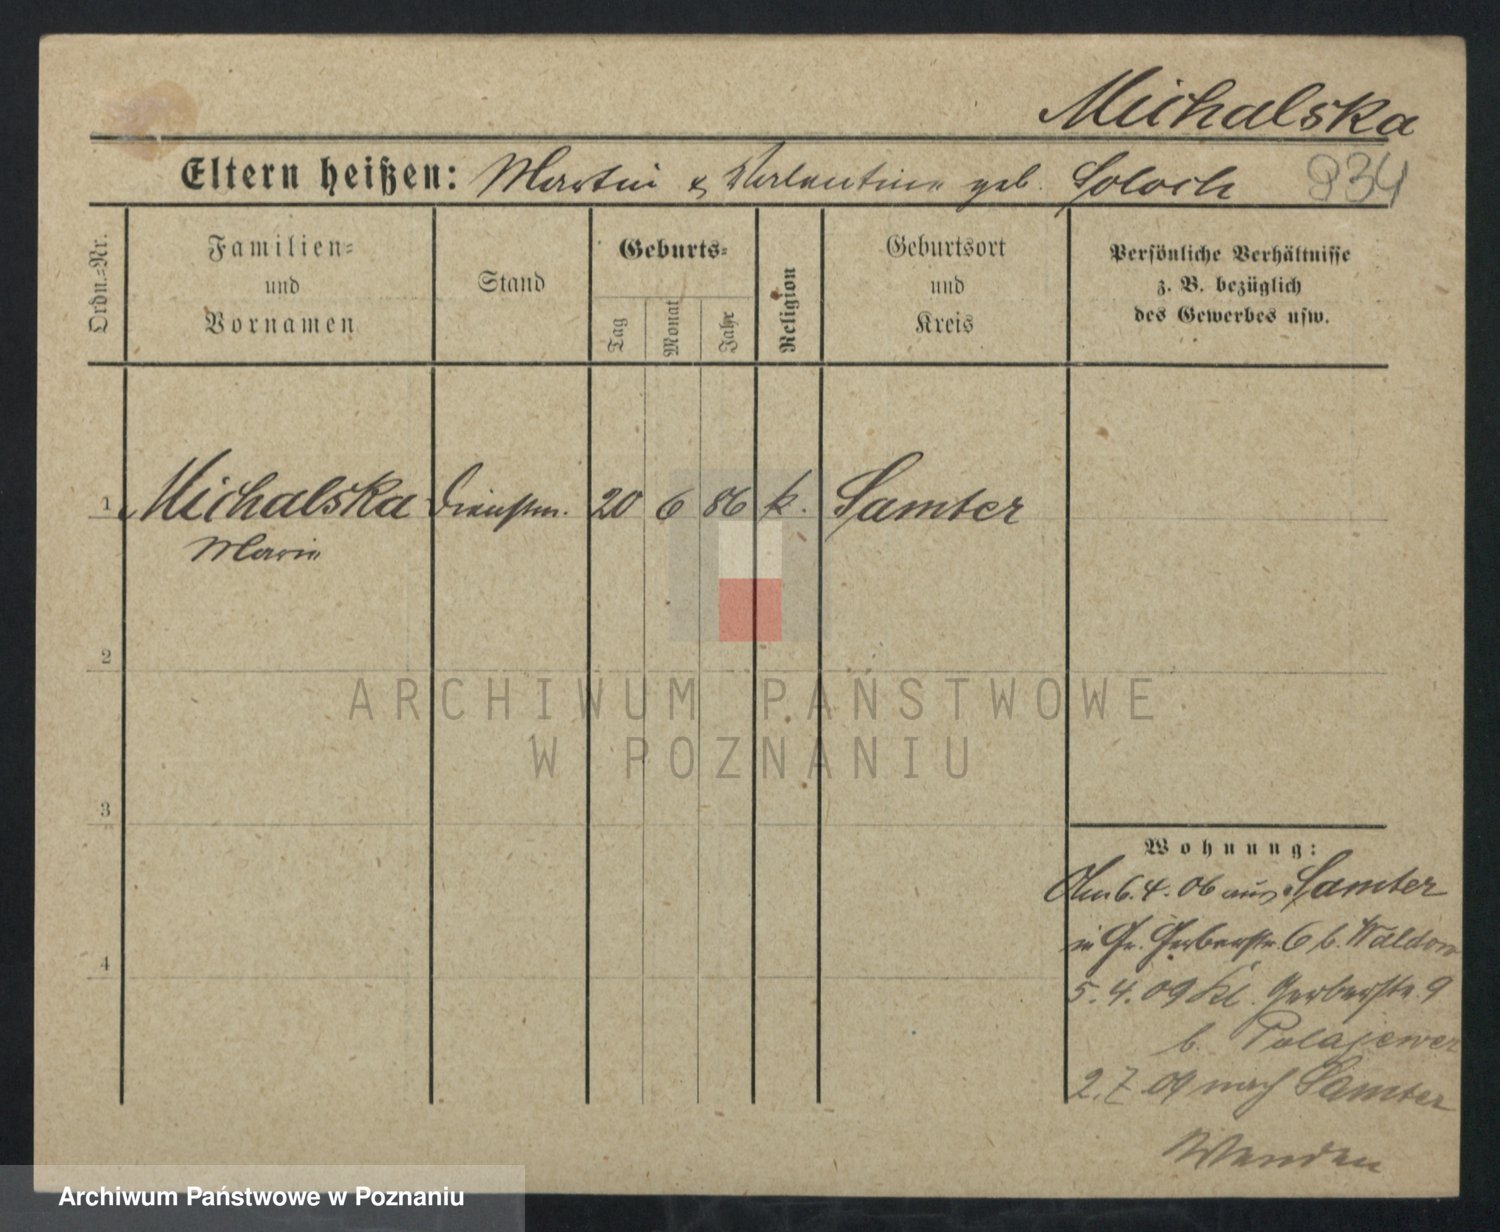 Michalska
Eltern heißen: Martin & Valentine geb. Soloch 934
Ordn.=Nr.
Familien=
und
Vornamen
Stand
Geburts=
Tag
Monat
Jahr
Religion
Geburtsort
und
Kreis
Persönliche Verhältnisse
z. B. bezüglich
des Gewerbes usw.
1 Michalska Dienstm. 20 6 86 k. Samter
Marie
2
ARCHIWUM PAŃSTWOWE
W POZNANIU
3
Wohnung:
Am 6.4.06 aus Samter
in Gr. Gerberstr. 6 b. Waldow
5.4.09 Kl. Gerberstr. 9
b. Polajewer
2.7.09 nach Samter
Wenden
4
Archiwum Państwowe w Poznaniu